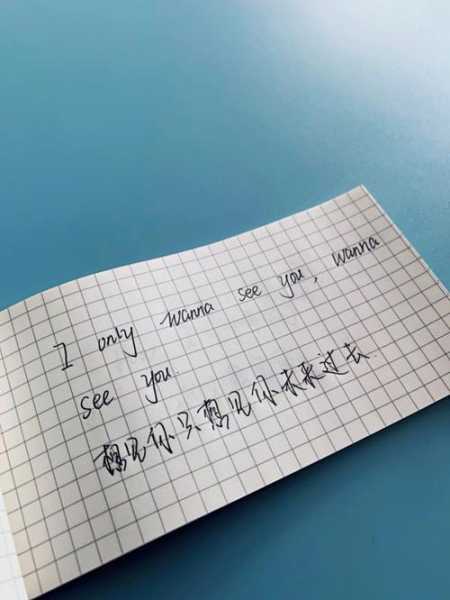 I only wanna see you, wanna
see you
想见你只想见你未来过去